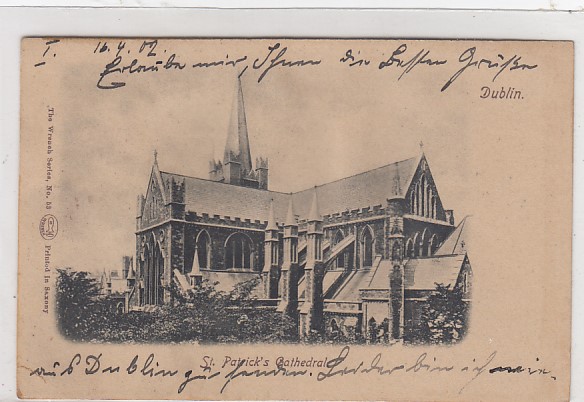 I. 16.4.02.
Erlaube mir, Ihnen die Besten Grüße
Dublin.
The Wrench Series, No. 53
Printed In Saxony
St. Patrick's Cathedral
aus Dublin zu senden. Leider bin ich